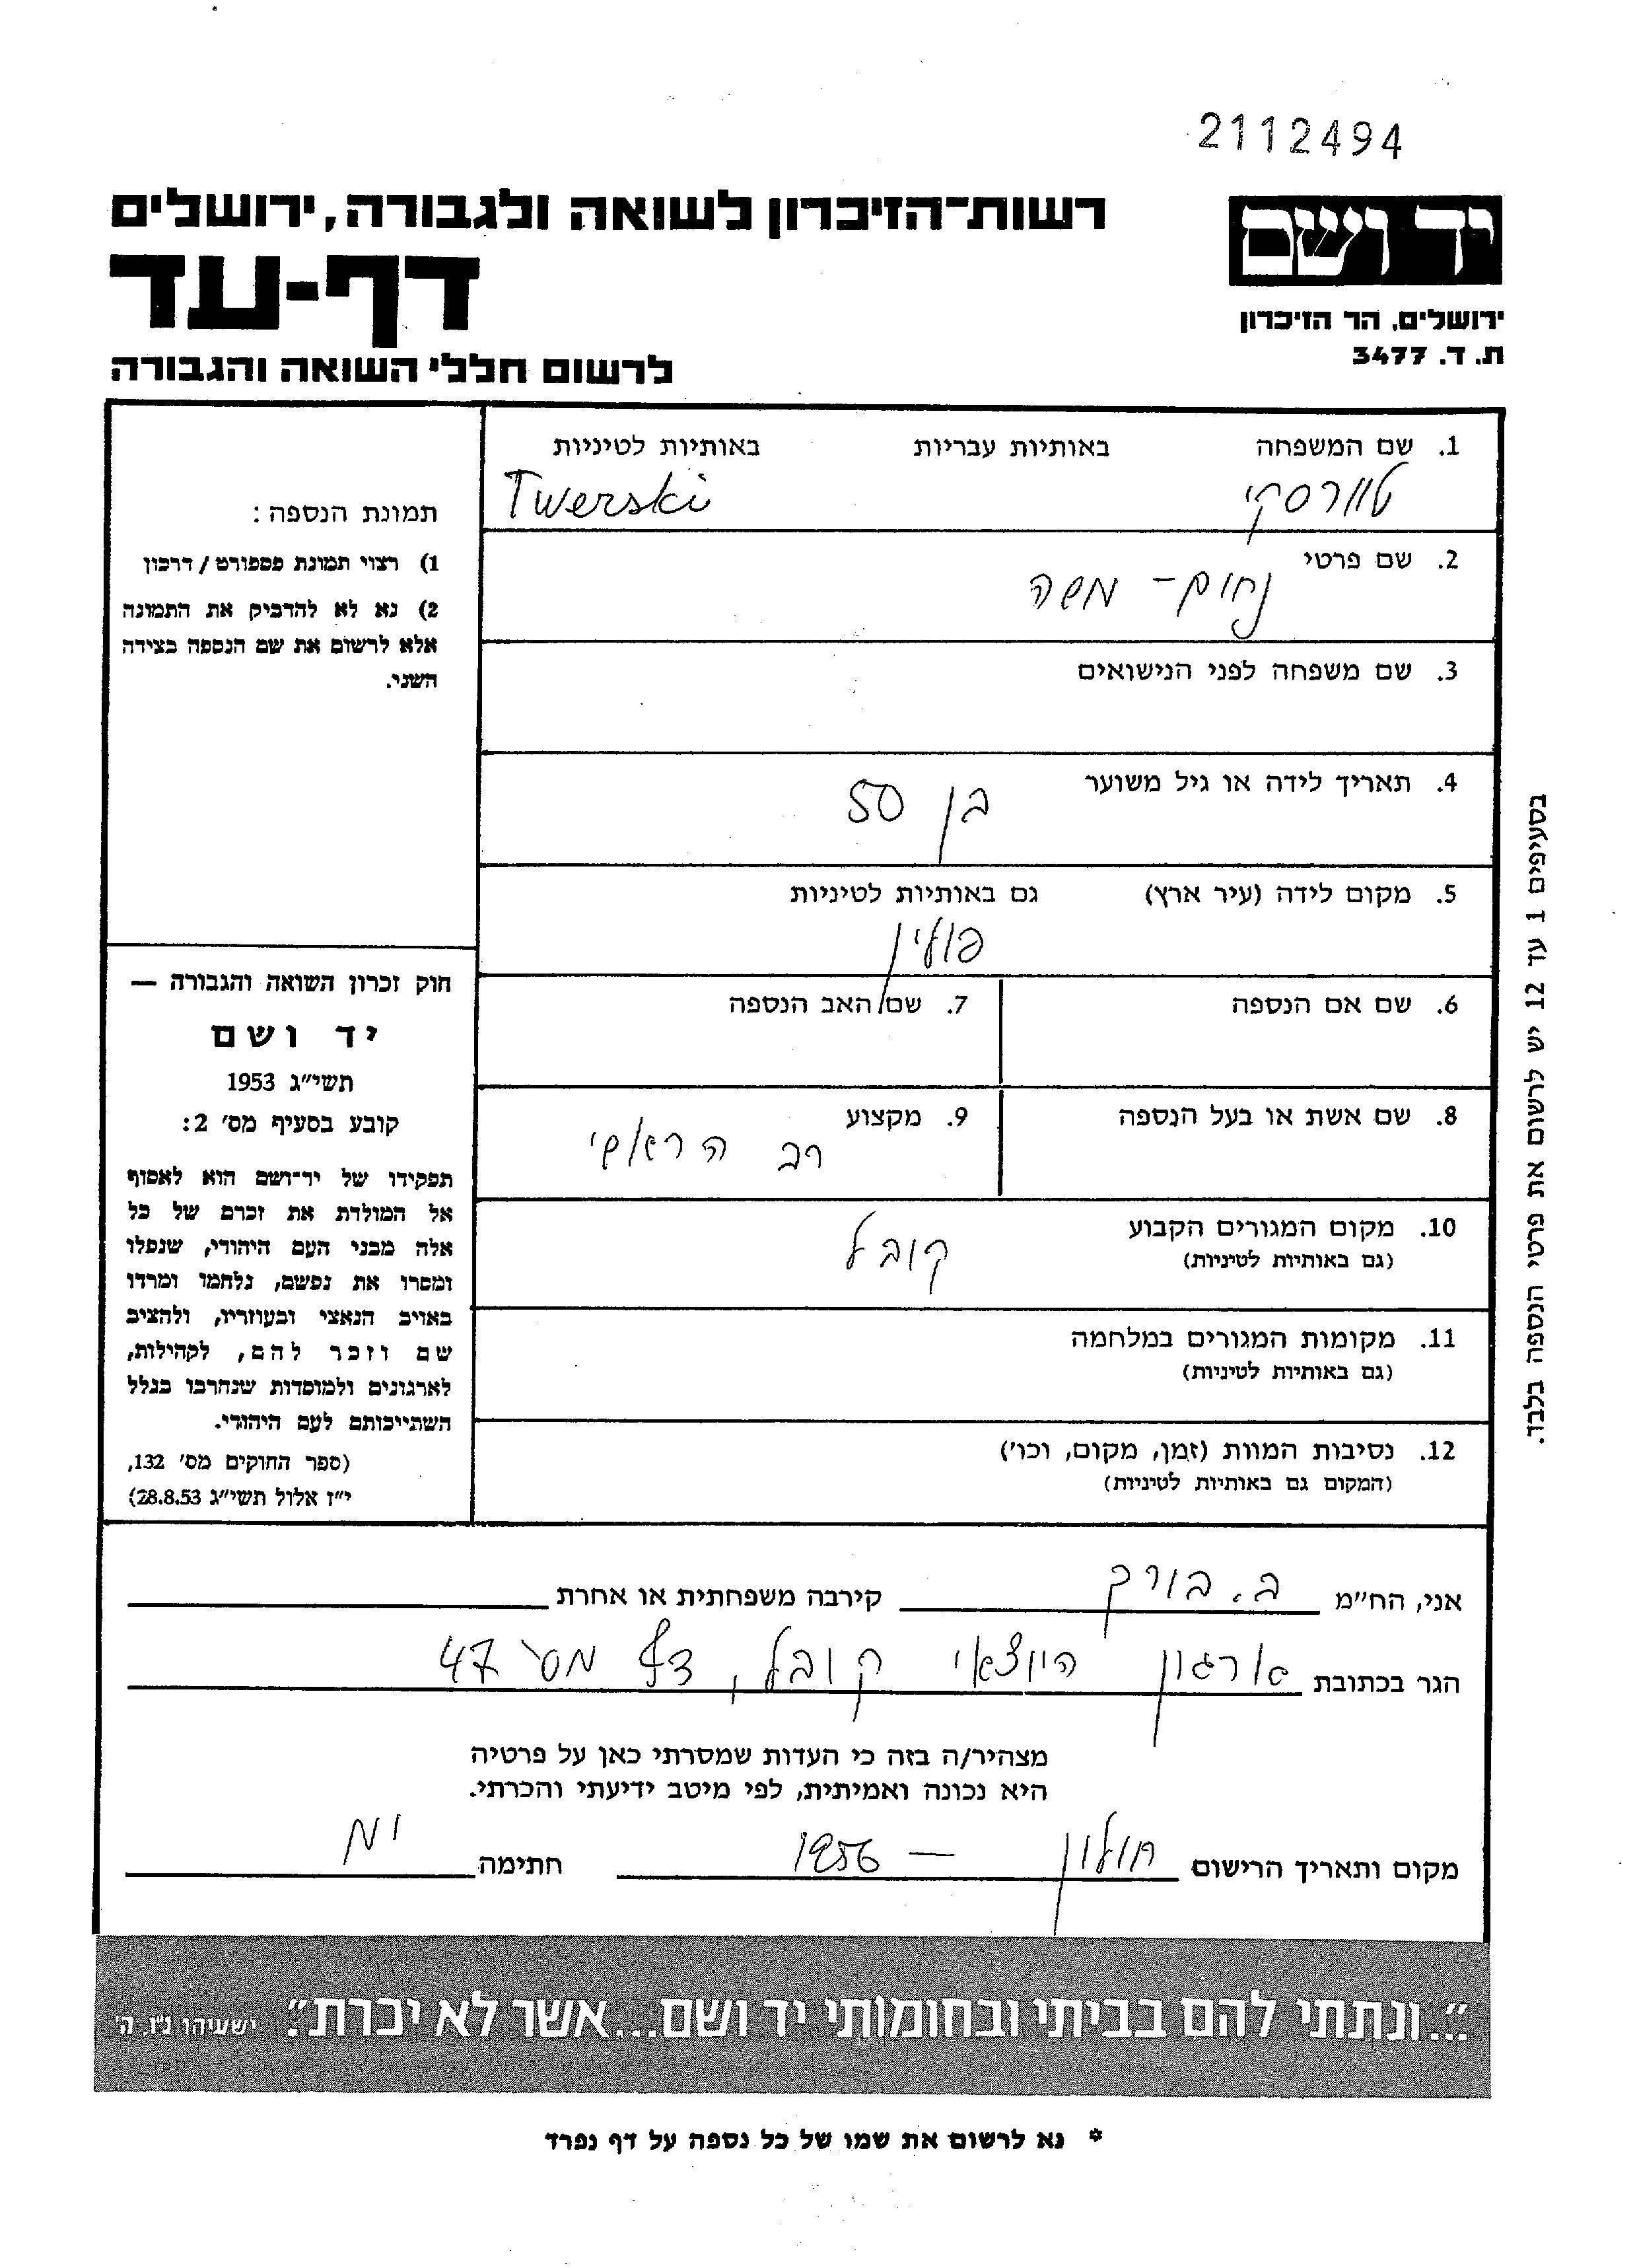 2112494
יד ושם
ירושלים, הר הזיכרון
ת. ד. 3477
רשות־הזיכרון לשואה ולגבורה, ירושלים
דף-עד
לרשום חללי השואה והגבורה
1. שם המשפחה באותיות עבריות באותיות לטיניות
טוורסקי Twerski
2. שם פרטי
נחום - משה
3. שם משפחה לפני הנישואים
4. תאריך לידה או גיל משוער
בן 50
5. מקום לידה (עיר ארץ) גם באותיות לטיניות
פולין
6. שם אם הנספה 7. שם האב הנספה
8. שם אשת או בעל הנספה 9. מקצוע
רב הראשי
10. מקום המגורים הקבוע
(גם באותיות לטיניות)
קובל
11. מקומות המגורים במלחמה
(גם באותיות לטיניות)
12. נסיבות המוות (זמן, מקום, וכו')
(המקום גם באותיות לטיניות)
תמונת הנספה:
1) רצוי תמונת פספורט / דרכון
2) נא לא להדביק את התמונה
אלא לרשום את שם הנספה בצידה
השני.
חוק זכרון השואה והגבורה —
יד ושם
תשי״ג 1953
קובע בסעיף מס׳ 2:
תפקידו של יד־ושם הוא לאסוף
אל המולדת את זכרם של כל
אלה מבני העם היהודי, שנפלו
ומסרו את נפשם, נלחמו ומרדו
באויב הנאצי ובעוזריו, ולהציב
שם וזכר להם, לקהילות,
לארגונים ולמוסדות שנחרבו בגלל
השתייכותם לעם היהודי.
(ספר החוקים מס׳ 132,
י״ז אלול תשי״ג 28.8.53)
בסעיפים 1 עד 12 יש לרשום את פרטי הנספה בלבד.
אני, הח״מ ב. בורק קירבה משפחתית או אחרת
הגר בכתובת ארגון היוצאי קובל, דף מס׳ 47
מצהיר/ה בזה כי העדות שמסרתי כאן על פרטיה
היא נכונה ואמיתית, לפי מיטב ידיעתי והכרתי.
מקום ותאריך הרישום חולון - 1956 חתימה
״...ונתתי להם בביתי ובחומותי יד ושם...אשר לא יכרת״. ישעיהו נ״ו, ה׳
* נא לרשום את שמו של כל נספה על דף נפרד